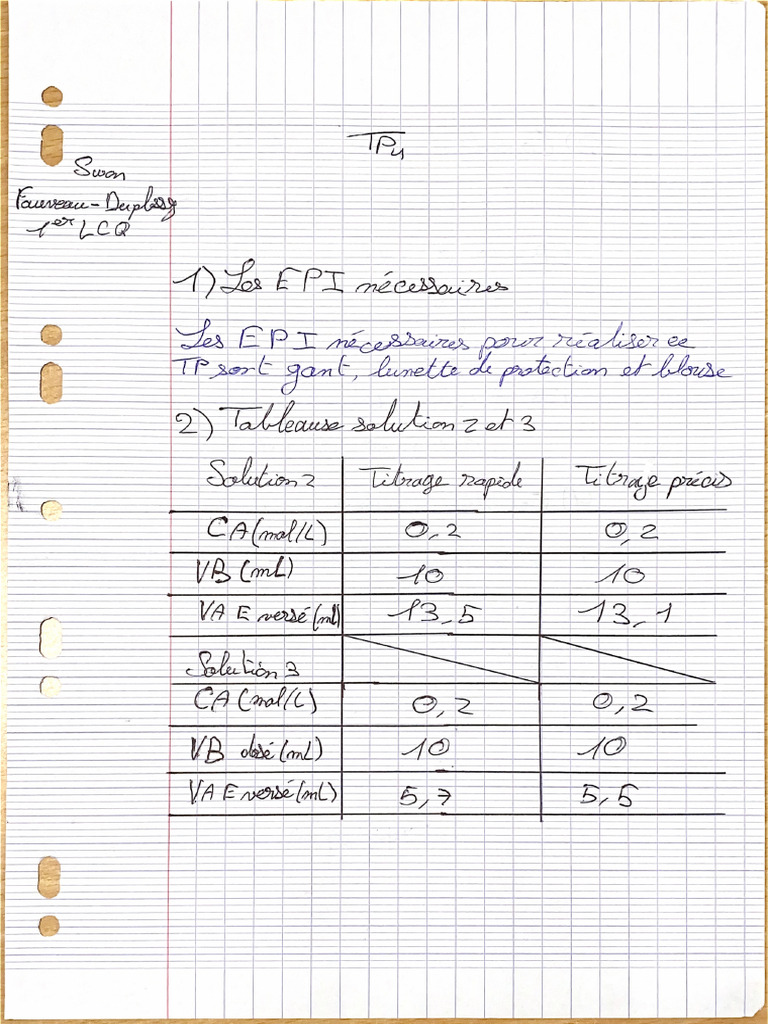 TP4
Swan
Fauveau-Duplessy
1er LCQ
1) Les EPI nécessaires
Les EPI nécessaires pour réaliser ce
TP sont gant, lunette de protection et blouse
2) Tableause solution 2 et 3
Solution 2 Titrage rapide Titrage précis
CA (mol/L) 0,2 0,2
VB (mL) 10 10
VA E versé (ml) 13,5 13,1
Solution 3
CA (mol/L) 0,2 0,2
VB dosé (mL) 10 10
VA E versé (mL) 5,7 5,5